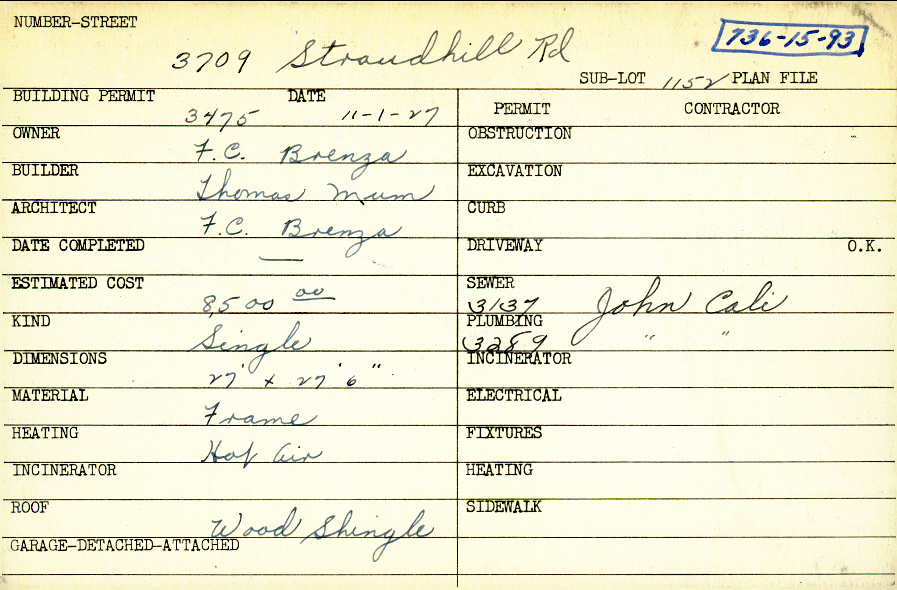 NUMBER-STREET
3709 Stroudhill Rd
736-15-93
SUB-LOT 1152 PLAN FILE
BUILDING PERMIT 3475 DATE 11-1-27
PERMIT CONTRACTOR
OWNER F.C. Brenza
OBSTRUCTION
BUILDER Thomas Mum
EXCAVATION
ARCHITECT F.C. Brenza
CURB
DATE COMPLETED —
DRIVEWAY O.K.
ESTIMATED COST 8,500 00
SEWER 3137 John Cali
KIND Single
PLUMBING 3289 " "
DIMENSIONS 27' x 27' 6"
INCINERATOR
MATERIAL Frame
ELECTRICAL
HEATING Hot Air
FIXTURES
INCINERATOR
HEATING
ROOF Wood Shingle
SIDEWALK
GARAGE-DETACHED-ATTACHED